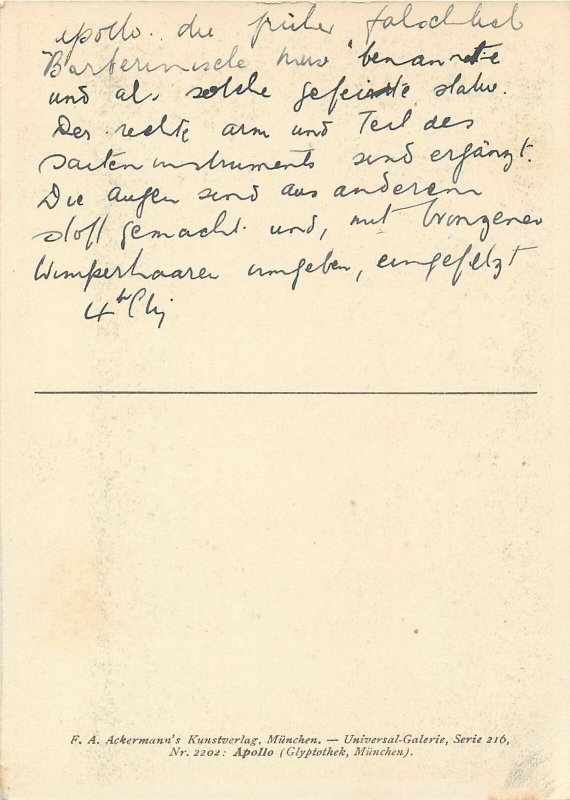 Apollo. die früher fälschlich
Barberinische Muse benannte
und als solche gefeierte Statue.
Der rechte arm und Teil des
Saiteninstruments sind ergänzt.
Die augen sind aus anderem
stoff gemacht und, mit bronzenen
Wimperhaaren umgeben, eingesetzt
4th
F. A. Ackermann's Kunstverlag, München. — Universal-Galerie, Serie 216,
Nr. 2202: Apollo (Glyptothek, München).